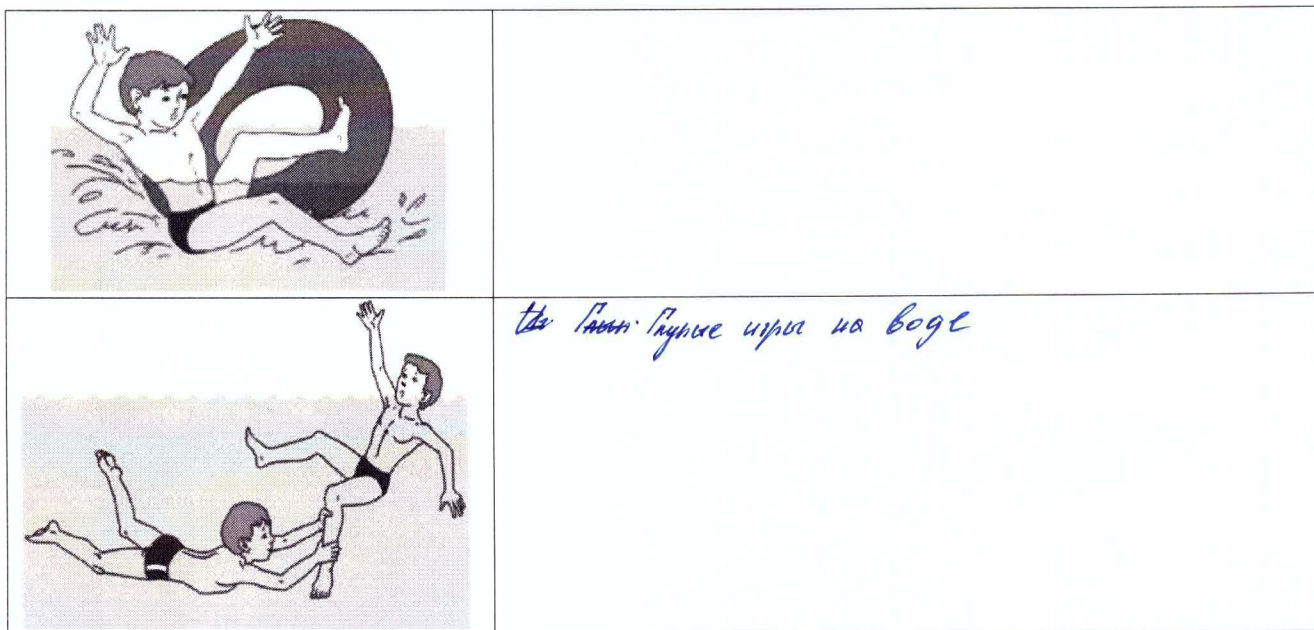 Глупые игры на воде